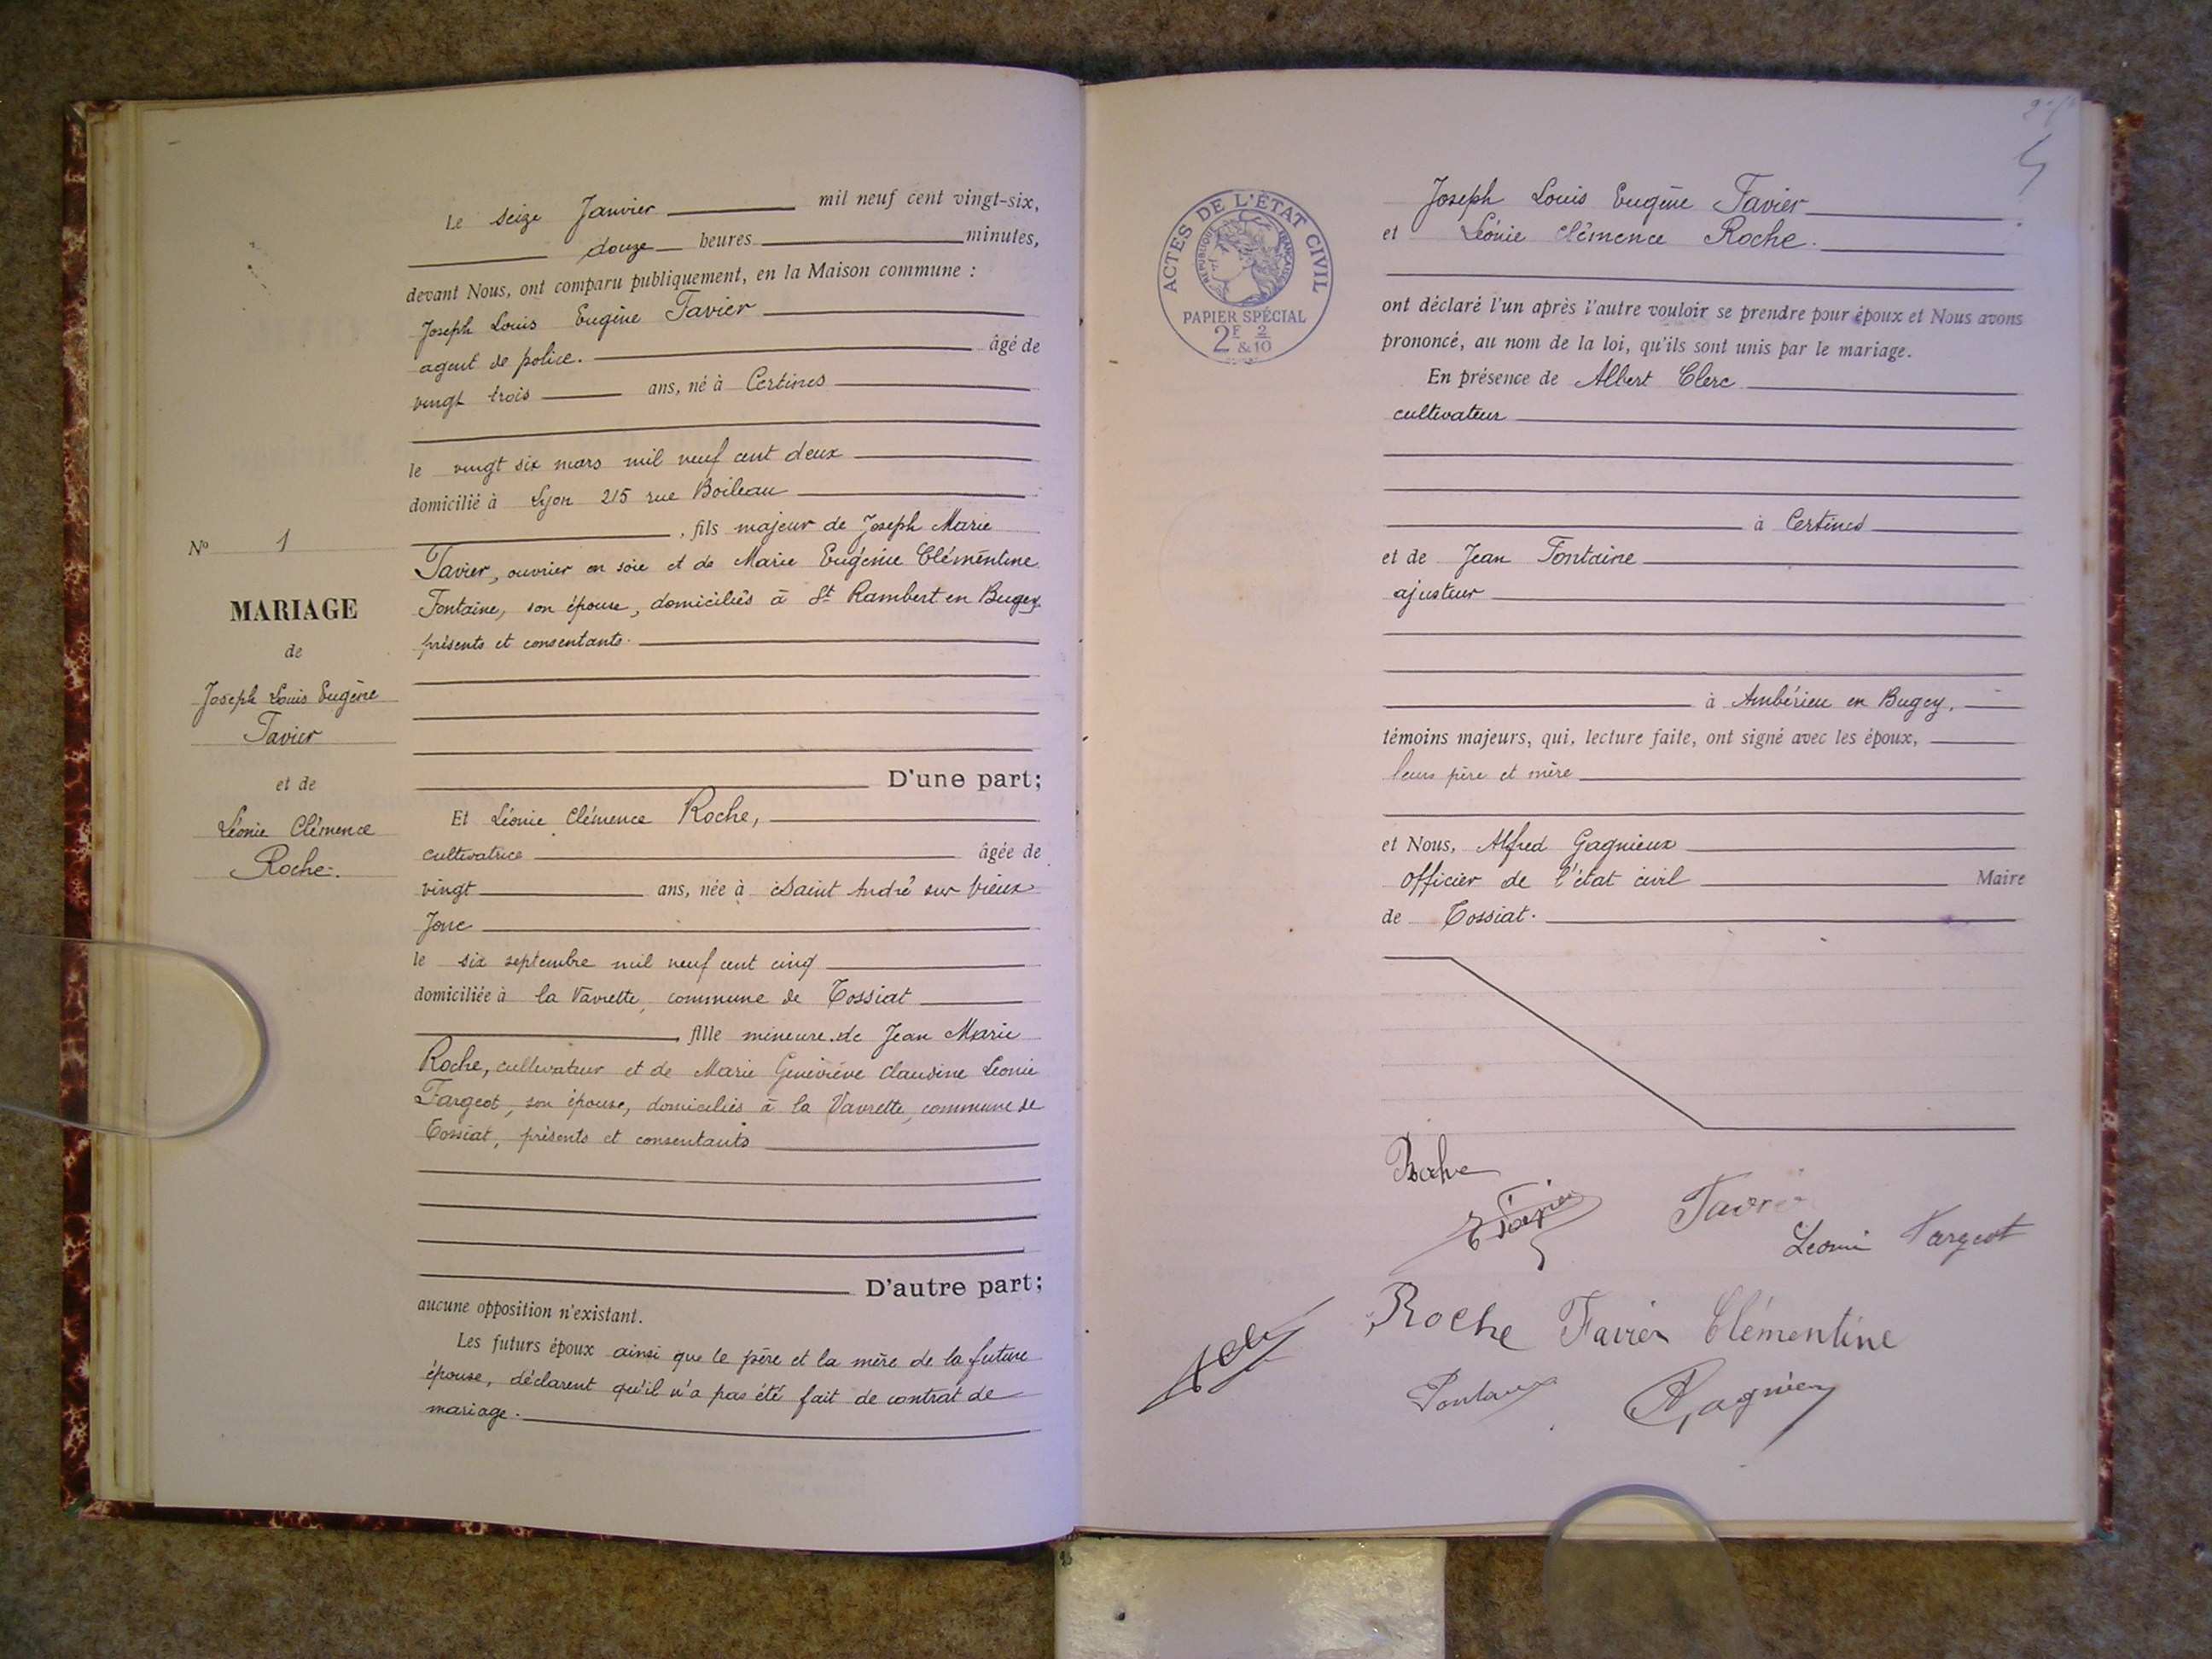 Le seize Janvier mil neuf cent vingt-six,
douze heures minutes,
devant Nous, ont comparu publiquement, en la Maison commune :
Joseph Louis Eugène Favier
agent de police. âgé de
vingt trois ans, né à Certines
le vingt six mars mil neuf cent deux
domicilié à Lyon 215 rue Boileau
, fils majeur de Joseph Marie
Favier, ouvrier en soie et de Marie Eugénie Clémentine
Fontaine, son épouse, domiciliés à St Rambert en Bugey
présents et consentants.
D'une part;
Nº 1
MARIAGE
de
Joseph Louis Eugène
Favier
et de
Léonie Clémence
Roche.
Et Léonie Clémence Roche,
cultivatrice âgée de
vingt ans, née à Saint André sur Vieux
Jonc
le six septembre mil neuf cent cinq
domiciliée à la Vavrette, commune de Tossiat
, fille mineure de Jean Marie
Roche, cultivateur et de Marie Geneviève Claudine Léonie
Fargeot, son épouse, domiciliés à la Vavrette, commune de
Tossiat, présents et consentants
D'autre part;
aucune opposition n'existant.
Les futurs époux ainsi que le père et la mère de la future
épouse, déclarent qu'il n'a pas été fait de contrat de
mariage.
ACTES DE L'ÉTAT CIVIL
RÉPUBLIQUE FRANÇAISE
PAPIER SPÉCIAL
2F & 2/10
Joseph Louis Eugène Favier
et Léonie Clémence Roche.
ont déclaré l'un après l'autre vouloir se prendre pour époux et Nous avons
prononcé, au nom de la loi, qu'ils sont unis par le mariage.
En présence de Albert Clerc
cultivateur
à Certines
et de Jean Fontaine
ajusteur
à Ambérieu en Bugey,
témoins majeurs, qui, lecture faite, ont signé avec les époux,
leurs père et mère
et Nous, Alfred Gagnieux
officier de l'état civil Maire
de Tossiat.
Roche
Favier
Léonie Fargeot
Roche Favier Clémentine
Gagnieux